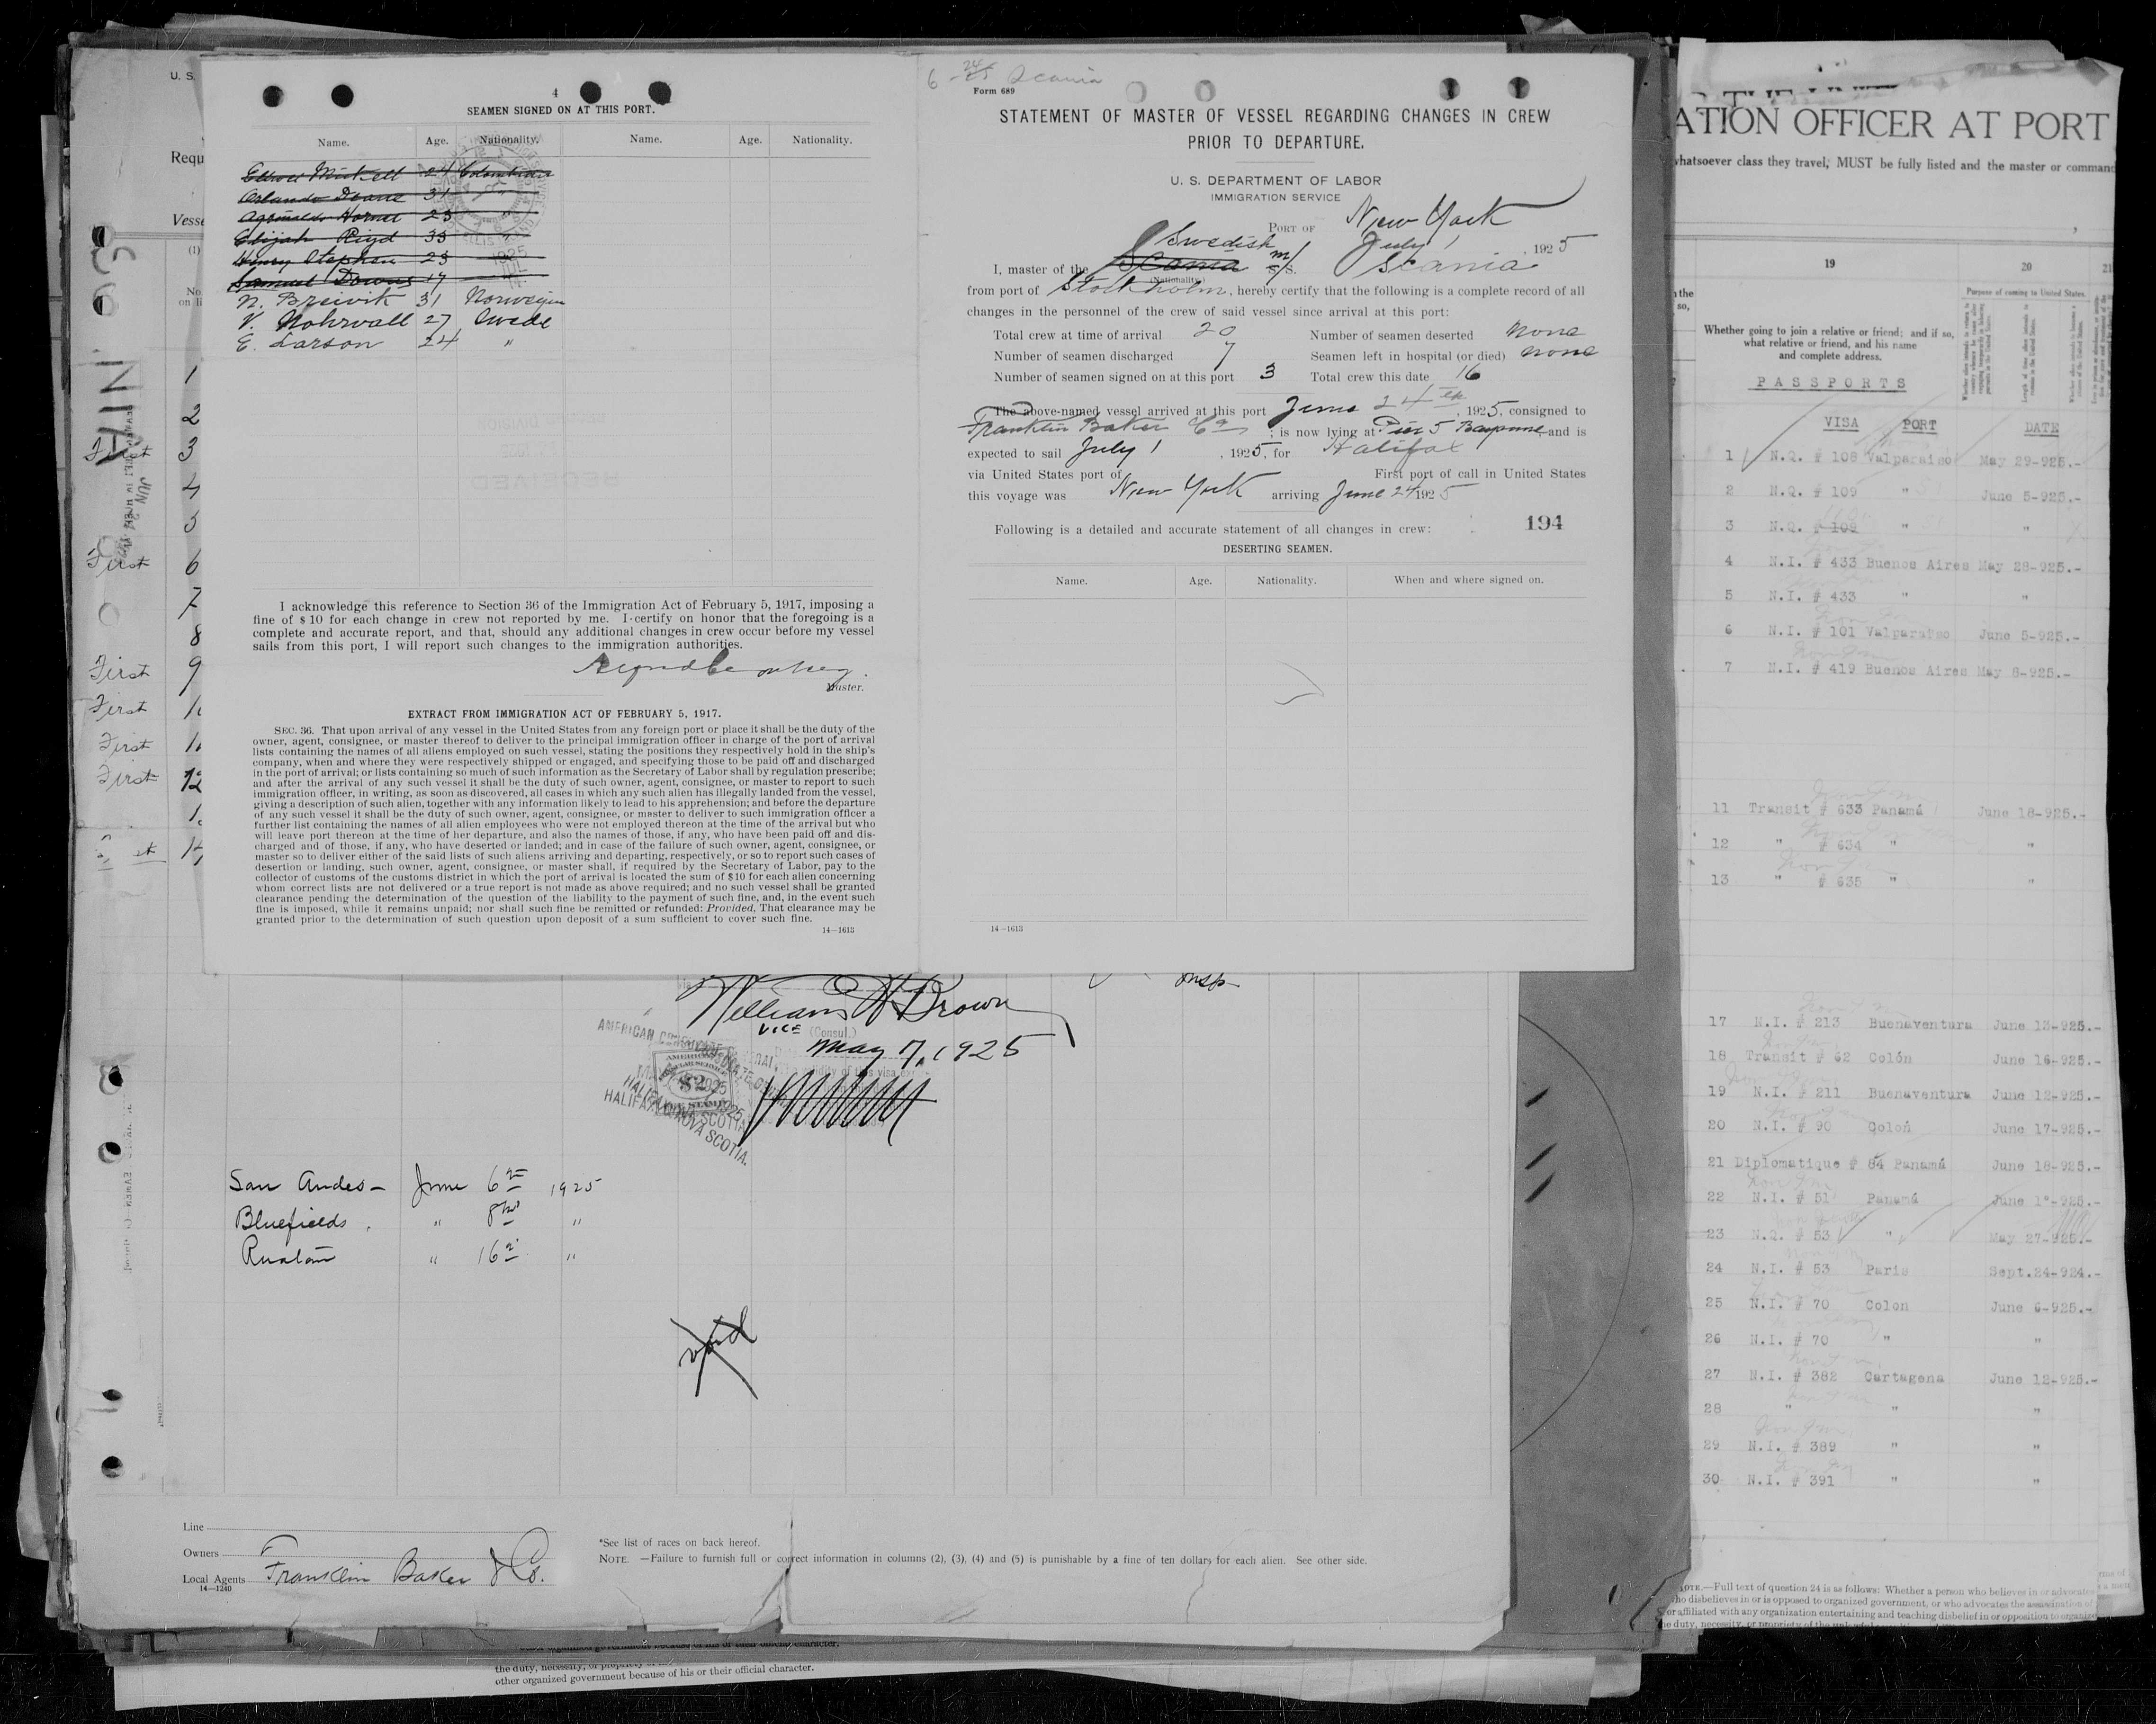 4
SEAMEN SIGNED ON AT THIS PORT.
Name. Age. Nationality. Name. Age. Nationality.
24 Colombian
Orlando 31 "
Hornet 23 "
Elijah 33 "
Henry Stephen 23
Samuel Downs 17
N. Breivik 31 Norwegian
V. Nohrvall 27 Swede
E. Larson 24 "
I acknowledge this reference to Section 36 of the Immigration Act of February 5, 1917, imposing a
fine of $10 for each change in crew not reported by me. I certify on honor that the foregoing is a
complete and accurate report, and that, should any additional changes in crew occur before my vessel
sails from this port, I will report such changes to the immigration authorities.
Master.
EXTRACT FROM IMMIGRATION ACT OF FEBRUARY 5, 1917.
SEC. 36. That upon arrival of any vessel in the United States from any foreign port or place it shall be the duty of the
owner, agent, consignee, or master thereof to deliver to the principal immigration officer in charge of the port of arrival
lists containing the names of all aliens employed on such vessel, stating the positions they respectively hold in the ship's
company, when and where they were respectively shipped or engaged, and specifying those to be paid off and discharged
in the port of arrival; or lists containing so much of such information as the Secretary of Labor shall by regulation prescribe;
and after the arrival of any such vessel it shall be the duty of such owner, agent, consignee, or master to report to such
immigration officer, in writing, as soon as discovered, all cases in which any such alien has illegally landed from the vessel,
giving a description of such alien, together with any information likely to lead to his apprehension; and before the departure
of any such vessel it shall be the duty of such owner, agent, consignee, or master to deliver to such immigration officer a
further list containing the names of all alien employees who were not employed thereon at the time of the arrival but who
will leave port thereon at the time of her departure, and also the names of those, if any, who have been paid off and dis-
charged and of those, if any, who have deserted or landed; and in case of the failure of such owner, agent, consignee, or
master so to deliver either of the said lists of such aliens arriving and departing, respectively, or so to report such cases of
desertion or landing, such owner, agent, consignee, or master shall, if required by the Secretary of Labor, pay to the
collector of customs of the customs district in which the port of arrival is located the sum of $10 for each alien concerning
whom correct lists are not delivered or a true report is not made as above required; and no such vessel shall be granted
clearance pending the determination of the question of the liability to the payment of such fine, and, in the event such
fine is imposed, while it remains unpaid; nor shall such fine be remitted or refunded: Provided, That clearance may be
granted prior to the determination of such question upon deposit of a sum sufficient to cover such fine.
14—1613
6-24-25 Scania
Form 689
STATEMENT OF MASTER OF VESSEL REGARDING CHANGES IN CREW
PRIOR TO DEPARTURE.
U. S. DEPARTMENT OF LABOR
IMMIGRATION SERVICE
PORT OF New York
July 1, 1925
I, master of the Swedish Scania m/s S. S. Scania
(Nationality.)
from port of Stockholm, hereby certify that the following is a complete record of all
changes in the personnel of the crew of said vessel since arrival at this port:
Total crew at time of arrival 20 Number of seamen deserted none
Number of seamen discharged 7 Seamen left in hospital (or died) none
Number of seamen signed on at this port 3 Total crew this date 16
The above-named vessel arrived at this port June 24th, 1925, consigned to
Franklin Baker Co; is now lying at Pier 5 Bayonne and is
expected to sail July 1, 1925, for Halifax
via United States port of First port of call in United States
this voyage was New York arriving June 24 1925
Following is a detailed and accurate statement of all changes in crew: 194
DESERTING SEAMEN.
Name. Age. Nationality. When and where signed on.
14—1613
U. S.
Requ
Vesse
(1)
No.
on li
JUN
1
2
First 3
4
5
First 6
7
8
First 9
First
First
First 12
insp
William H Brown
Vice (Consul.)
May 7, 1925
AMERICAN CONSULATE GENERAL
HALIFAX, NOVA SCOTIA.
San Andes - June 6 1925
Bluefields. " 8 "
Ruatan " 16 "
void
Line
Owners
Local Agents Franklin Baker & Co.
14—1240
*See list of races on back hereof.
NOTE.—Failure to furnish full or correct information in columns (2), (3), (4) and (5) is punishable by a fine of ten dollars for each alien. See other side.
the duty, necessity, or propriety of
other organized government because of his or their official character.
ATION OFFICER AT PORT
whatsoever class they travel, MUST be fully listed and the master or command
19 20 21
Whether going to join a relative or friend; and if so,
what relative or friend, and his name
and complete address.
Purpose of coming to United States.
PASSPORTS
VISA PORT DATE
1 N.Q. # 108 Valparaiso May 29-925.-
2 N.Q. # 109 " June 5-925.-
3 N.Q. # 108 " "
4 N.I. # 433 Buenos Aires May 28-925.-
5 N.I. # 433 " "
6 N.I. # 101 Valparaiso June 5-925.-
7 N.I. # 419 Buenos Aires May 8-925.-
11 Transit # 633 Panamá June 18-925.-
12 " # 634 " "
13 " # 635 " "
17 N.I. # 213 Buenaventura June 13-925.-
18 Transit # 62 Colón June 16-925.-
19 N.I. # 211 Buenaventura June 12-925.-
20 N.I. # 90 Colón June 17-925.-
21 Diplomatique # 84 Panamá June 18-925.-
22 N.I. # 51 Panamá June 1°-925.-
23 N.Q. # 53 " May 27-925.-
24 N.I. # 53 Paris Sept.24-924.-
25 N.I. # 70 Colon June 6-925.-
26 N.I. # 70 " "
27 N.I. # 382 Cartagena June 12-925.-
28 " " "
29 N.I. # 389 " "
30 N.I. # 391 " "
NOTE.—Full text of question 24 is as follows: Whether a person who believes in or advocates
who disbelieves in or is opposed to organized government, or who advocates the assassination of
or affiliated with any organization entertaining and teaching disbelief in or opposition to organized